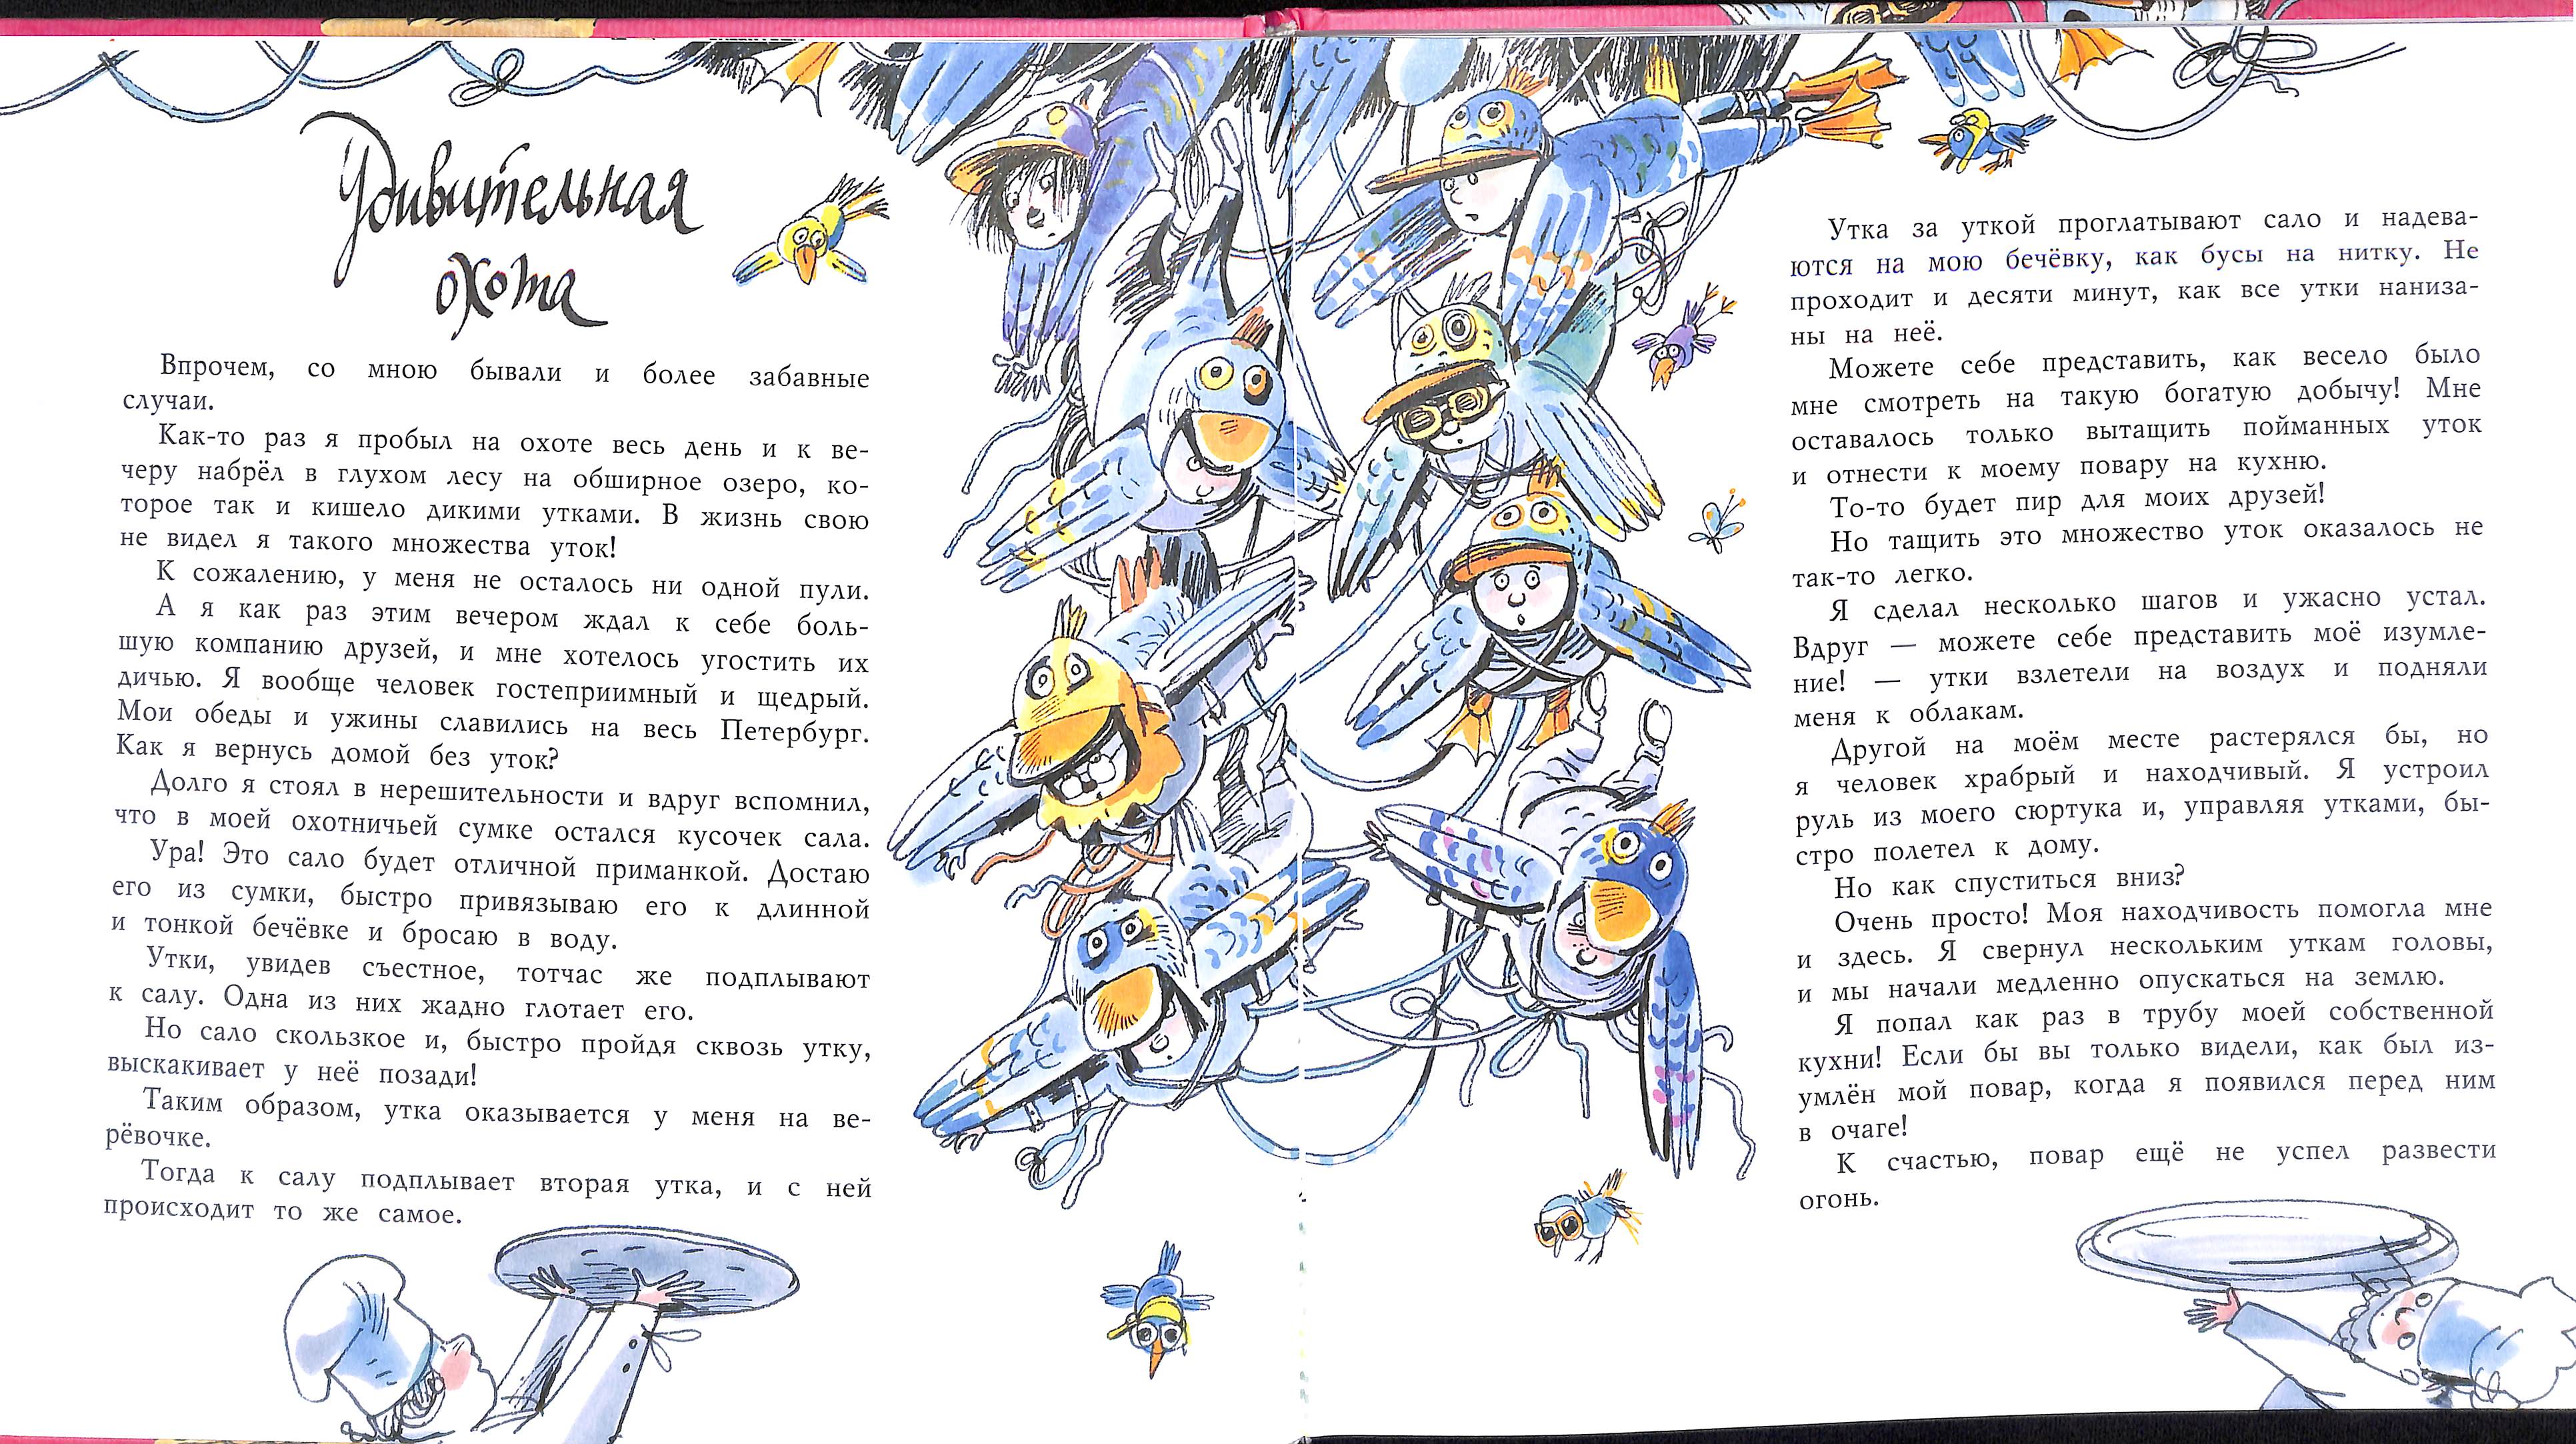 Удивительная
охота
Впрочем, со мною бывали и более забавные
случаи.
Как-то раз я пробыл на охоте весь день и к ве-
черу набрёл в глухом лесу на обширное озеро, ко-
торое так и кишело дикими утками. В жизнь свою
не видел я такого множества уток!
К сожалению, у меня не осталось ни одной пули.
А я как раз этим вечером ждал к себе боль-
шую компанию друзей, и мне хотелось угостить их
дичью. Я вообще человек гостеприимный и щедрый.
Мои обеды и ужины славились на весь Петербург.
Как я вернусь домой без уток?
Долго я стоял в нерешительности и вдруг вспомнил,
что в моей охотничьей сумке остался кусочек сала.
Ура! Это сало будет отличной приманкой. Достаю
его из сумки, быстро привязываю его к длинной
и тонкой бечёвке и бросаю в воду.
Утки, увидев съестное, тотчас же подплывают
к салу. Одна из них жадно глотает его.
Но сало скользкое и, быстро пройдя сквозь утку,
выскакивает у неё позади!
Таким образом, утка оказывается у меня на ве-
рёвочке.
Тогда к салу подплывает вторая утка, и с ней
происходит то же самое.
Утка за уткой проглатывают сало и надева-
ются на мою бечёвку, как бусы на нитку. Не
проходит и десяти минут, как все утки наниза-
ны на неё.
Можете себе представить, как весело было
мне смотреть на такую богатую добычу! Мне
оставалось только вытащить пойманных уток
и отнести к моему повару на кухню.
То-то будет пир для моих друзей!
Но тащить это множество уток оказалось не
так-то легко.
Я сделал несколько шагов и ужасно устал.
Вдруг — можете себе представить моё изумле-
ние! — утки взлетели на воздух и подняли
меня к облакам.
Другой на моём месте растерялся бы, но
я человек храбрый и находчивый. Я устроил
руль из моего сюртука и, управляя утками, бы-
стро полетел к дому.
Но как спуститься вниз?
Очень просто! Моя находчивость помогла мне
и здесь. Я свернул нескольким уткам головы,
и мы начали медленно опускаться на землю.
Я попал как раз в трубу моей собственной
кухни! Если бы вы только видели, как был из-
умлён мой повар, когда я появился перед ним
в очаге!
К счастью, повар ещё не успел развести
огонь.